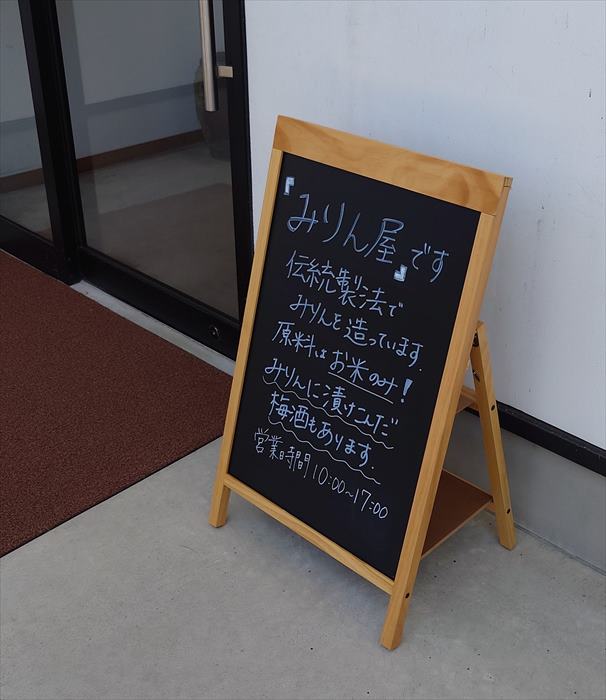 『みりん屋』です
伝統製法で
みりんを造っています.
原料はお米のみ!
みりんに漬けこんだ
梅酒もあります.
営業時間10:00~17:00